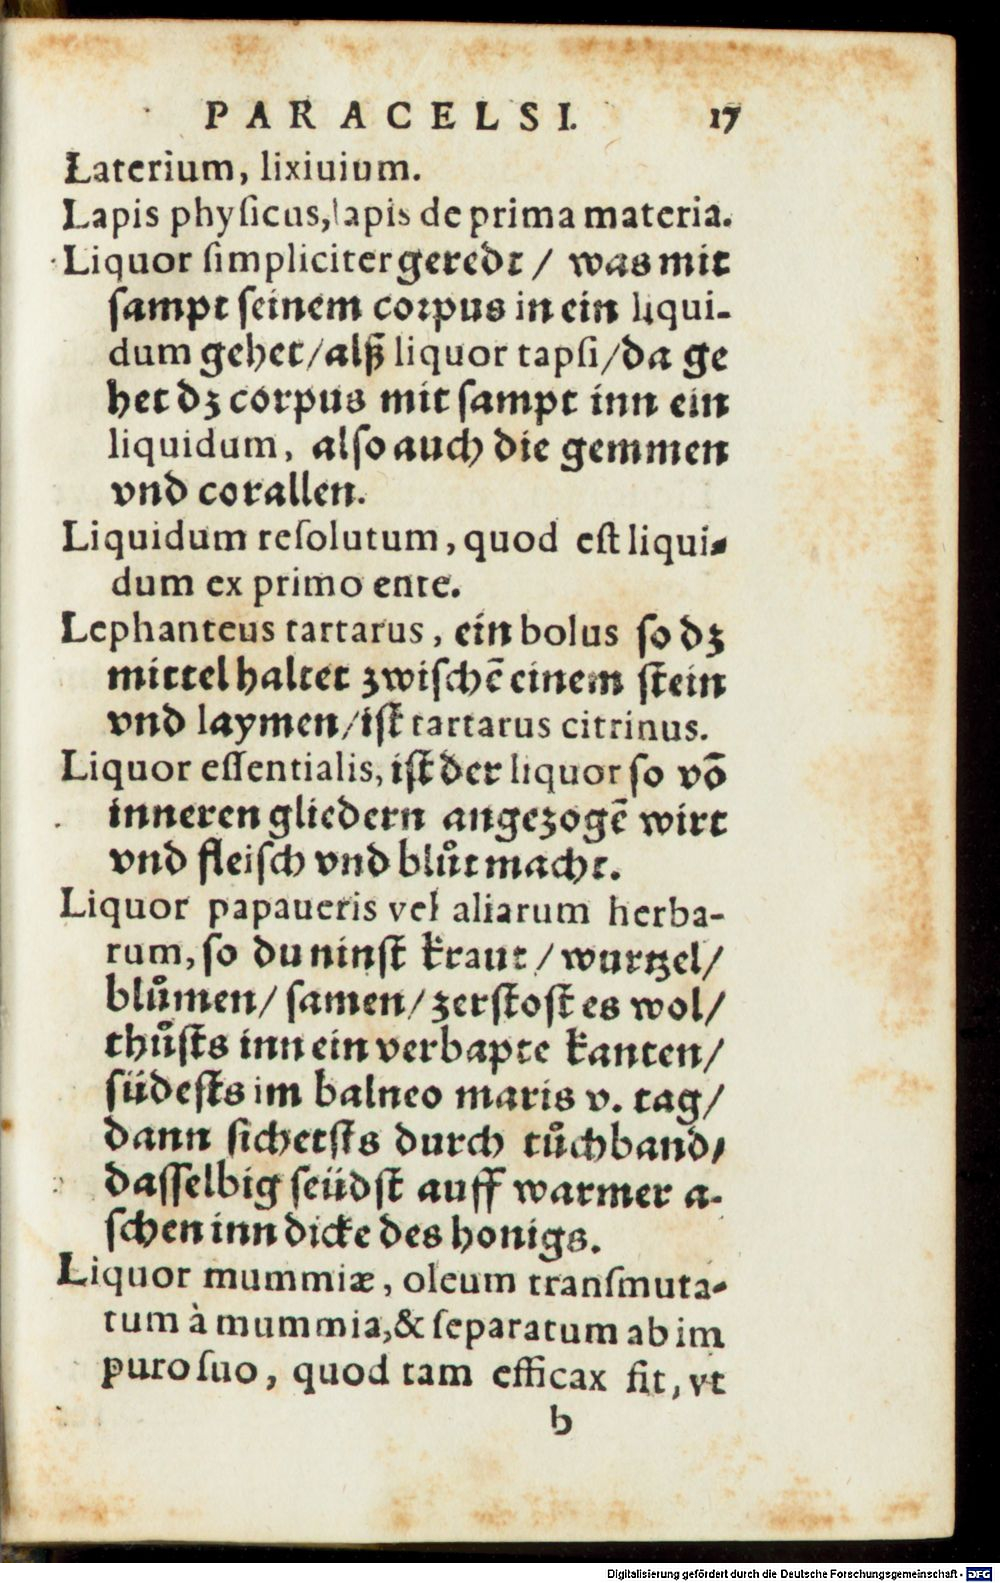 PARACELSI. 17
Laterium, lixiuium.
Lapis phyſicus, lapis de prima materia.
Liquor ſimpliciter geredt / was mit
ſampt ſeinem corpus in ein liqui-
dum gehet / alß liquor tapſi / da ge
het dz corpus mit ſampt inn ein
liquidum, alſo auch die gemmen
vnd corallen.
Liquidum reſolutum, quod eſt liqui-
dum ex primo ente.
Lephanteus tartarus, ein bolus ſo dz
mittel haltet zwiſchē einem ſtein
vnd laymen / iſt tartarus citrinus.
Liquor eſſentialis, iſt der liquor ſo vō
inneren gliedern angezogē wirt
vnd fleiſch vnd blůt macht.
Liquor papaueris vel aliarum herba-
rum, ſo du ninſt kraut / wurtzel /
blůmen / ſamen / zerſtoſt es wol /
thůſts inn ein verbapte kanten /
ſüdeſts im balneo maris v. tag /
dann ſichetſts durch tůchband /
daſſelbig ſeüdſt auff warmer a-
ſchen inn dicke des honigs.
Liquor mummiæ, oleum tranſmuta-
tum à mummia, & ſeparatum ab im
puro ſuo, quod tam efficax ſit, vt
b
Digitalisierung gefördert durch die Deutsche Forschungsgemeinschaft - DFG